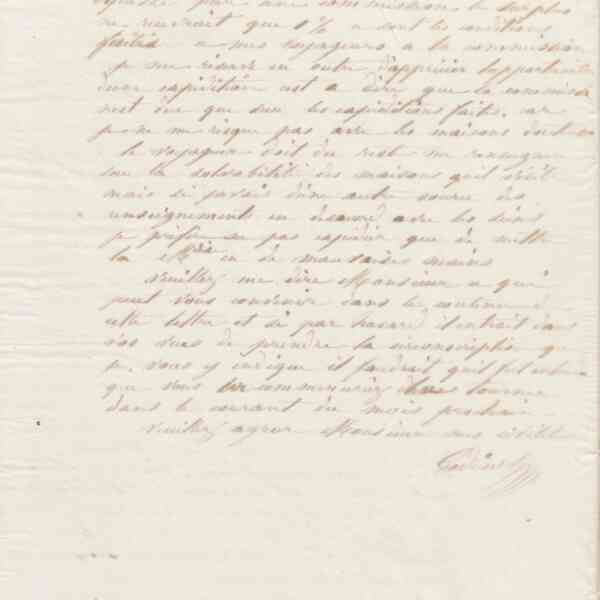 pour une commission le surplus
ne recevrait que % ce sont les conditions
faites a mes voyageurs a la commission
je me réserve en outre d'apprécier l'opportunité
d'une expédition c'est a dire que la commission
n'est due que sur les expéditions faites. car
je ne me risque pas avec les maisons dont
le voyageur doit du reste me renseigner
sur la solvabilité des maisons qu'il visite
mais si j'avais d'une autre source des
renseignements en désaccord avec les siens
je préfère pas expédier que de mettre
la Mse en de mauvaises mains
Veuillez me dire Monsieur ce qui
peut vous convenir dans le contenu de
cette lettre et si par hasard il entrait dans
vos vues de prendre la circonscription que
je vous y indique il faudrait
que vous commenciez tournée
dans le courant du mois prochain
Veuillez agréer Monsieur mes
Godin